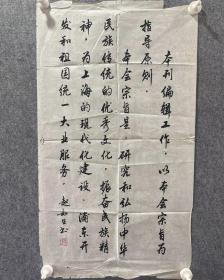 本刊编辑工作，以本会宗旨为
指导原则。
本会宗旨是 研究和弘扬中华
民族传统的优秀文化，振奋民族精
神，为上海的现代化建设，浦东开
发和祖国统一大业服务。